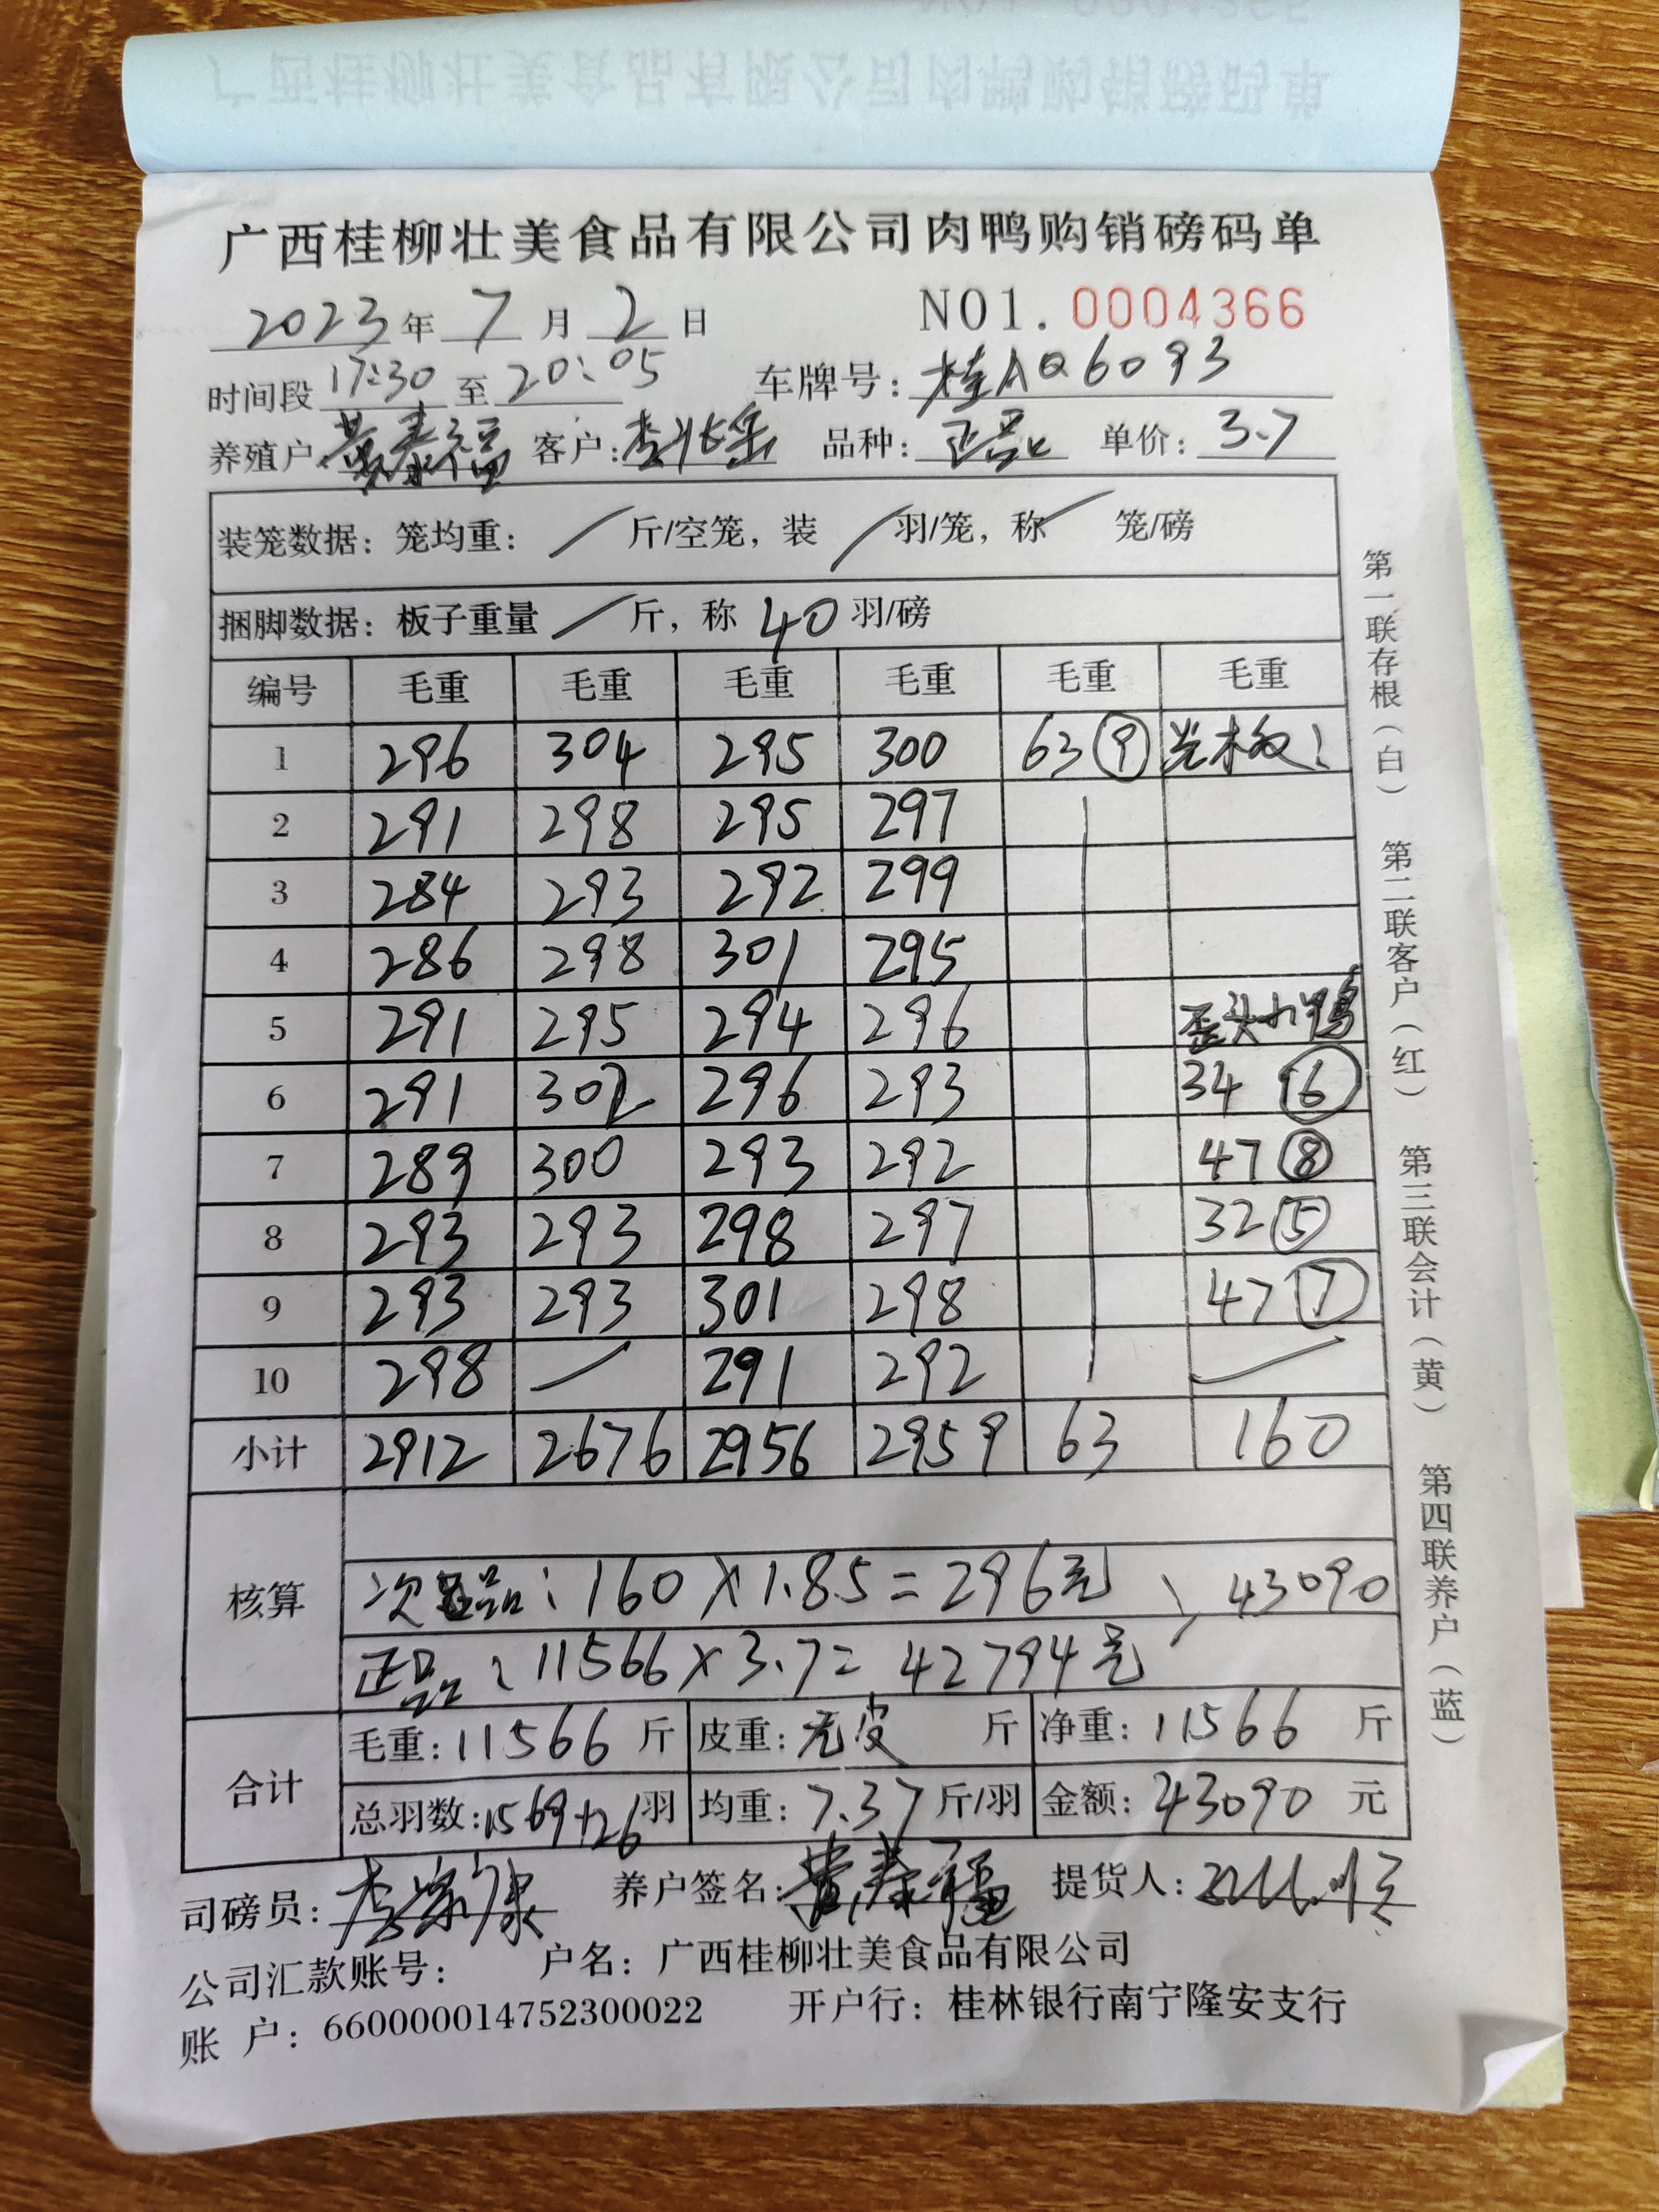 广西桂柳壮美食品有限公司肉鸭购销磅码单
2023年 7 月 2 日 NO1. 0004366
时间段 17:30 至 20:05 车牌号: 桂AQ6093
养殖户: 黄泰福 客户: 李 品种: 正品 单价: 3.7
装笼数据: 笼均重: / 斤/空笼, 装 / 羽/笼, 称 / 笼/磅
捆脚数据: 板子重量 / 斤, 称 40 羽/磅
编号 毛重 毛重 毛重 毛重 毛重 毛重
1 296 304 295 300 63 ⑨ 光板:
2 291 298 295 297
3 284 293 292 299
4 286 298 301 295
5 291 295 294 296 歪头小鸭
6 291 302 296 293 34 ⑥
7 289 300 293 292 47 ⑧
8 293 293 298 297 32 ⑤
9 293 293 301 298 47 ⑦
10 298 / 291 292 /
小计 2912 2676 2956 2959 63 160
核算
次品: 160×1.85=296元 43090
正品: 11566×3.7=42794元
合计
毛重: 11566 斤 皮重: 无皮 斤 净重: 11566 斤
总羽数: 1569+26 羽 均重: 7.37 斤/羽 金额: 43090 元
司磅员: 李家康 养户签名: 黄泰福 提货人:
公司汇款账号: 户名: 广西桂柳壮美食品有限公司
账 户: 660000014752300022 开户行: 桂林银行南宁隆安支行
第一联存根(白) 第二联客户(红) 第三联会计(黄) 第四联养户(蓝)